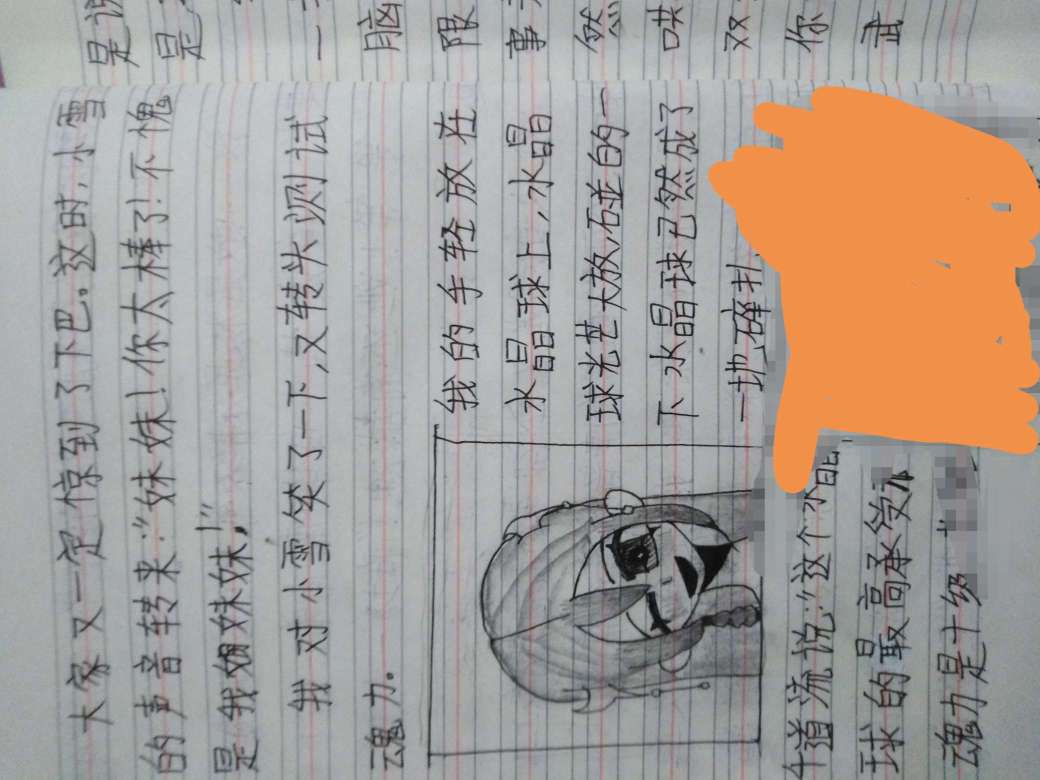 大家又一定惊到了下巴。这时,小雪
的声音转来:“妹妹!你太棒了!不愧
是我的妹妹!”
我对小雪笑了一下,又转头测试
魂力。
我的手轻放在
水晶球上,水晶
球光芒大放,碰的一
下水晶球已然成了
一地
道流说:“这个水晶
球的最高承受
魂力是十级
是
是
一
脑
限
事
然
哄
双
你
武